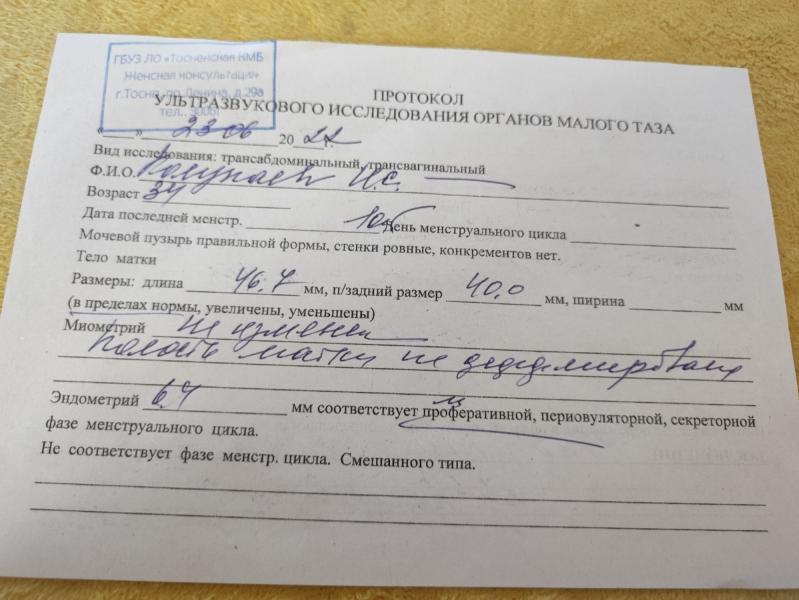 ГБУЗ ЛО «Тосненская КМБ
Женская консультация»
г.Тосно, пр.Ленина, д.29а
тел.
ПРОТОКОЛ
УЛЬТРАЗВУКОВОГО ИССЛЕДОВАНИЯ ОРГАНОВ МАЛОГО ТАЗА
«____» 23 06 20 22 г.
Вид исследования: трансабдоминальный, трансвагинальный
Ф.И.О.
Возраст 34
Дата последней менстр. 10.6 День менструального цикла
Мочевой пузырь правильной формы, стенки ровные, конкрементов нет.
Тело матки
Размеры: длина 46.7 мм, п/задний размер 40,0 мм, ширина мм
(в пределах нормы, увеличены, уменьшены)
Миометрий не изменен
Полость матки не
Эндометрий 6,7 мм соответствует проферативной, периовуляторной, секреторной
фазе менструального цикла.
Не соответствует фазе менстр. цикла. Смешанного типа.